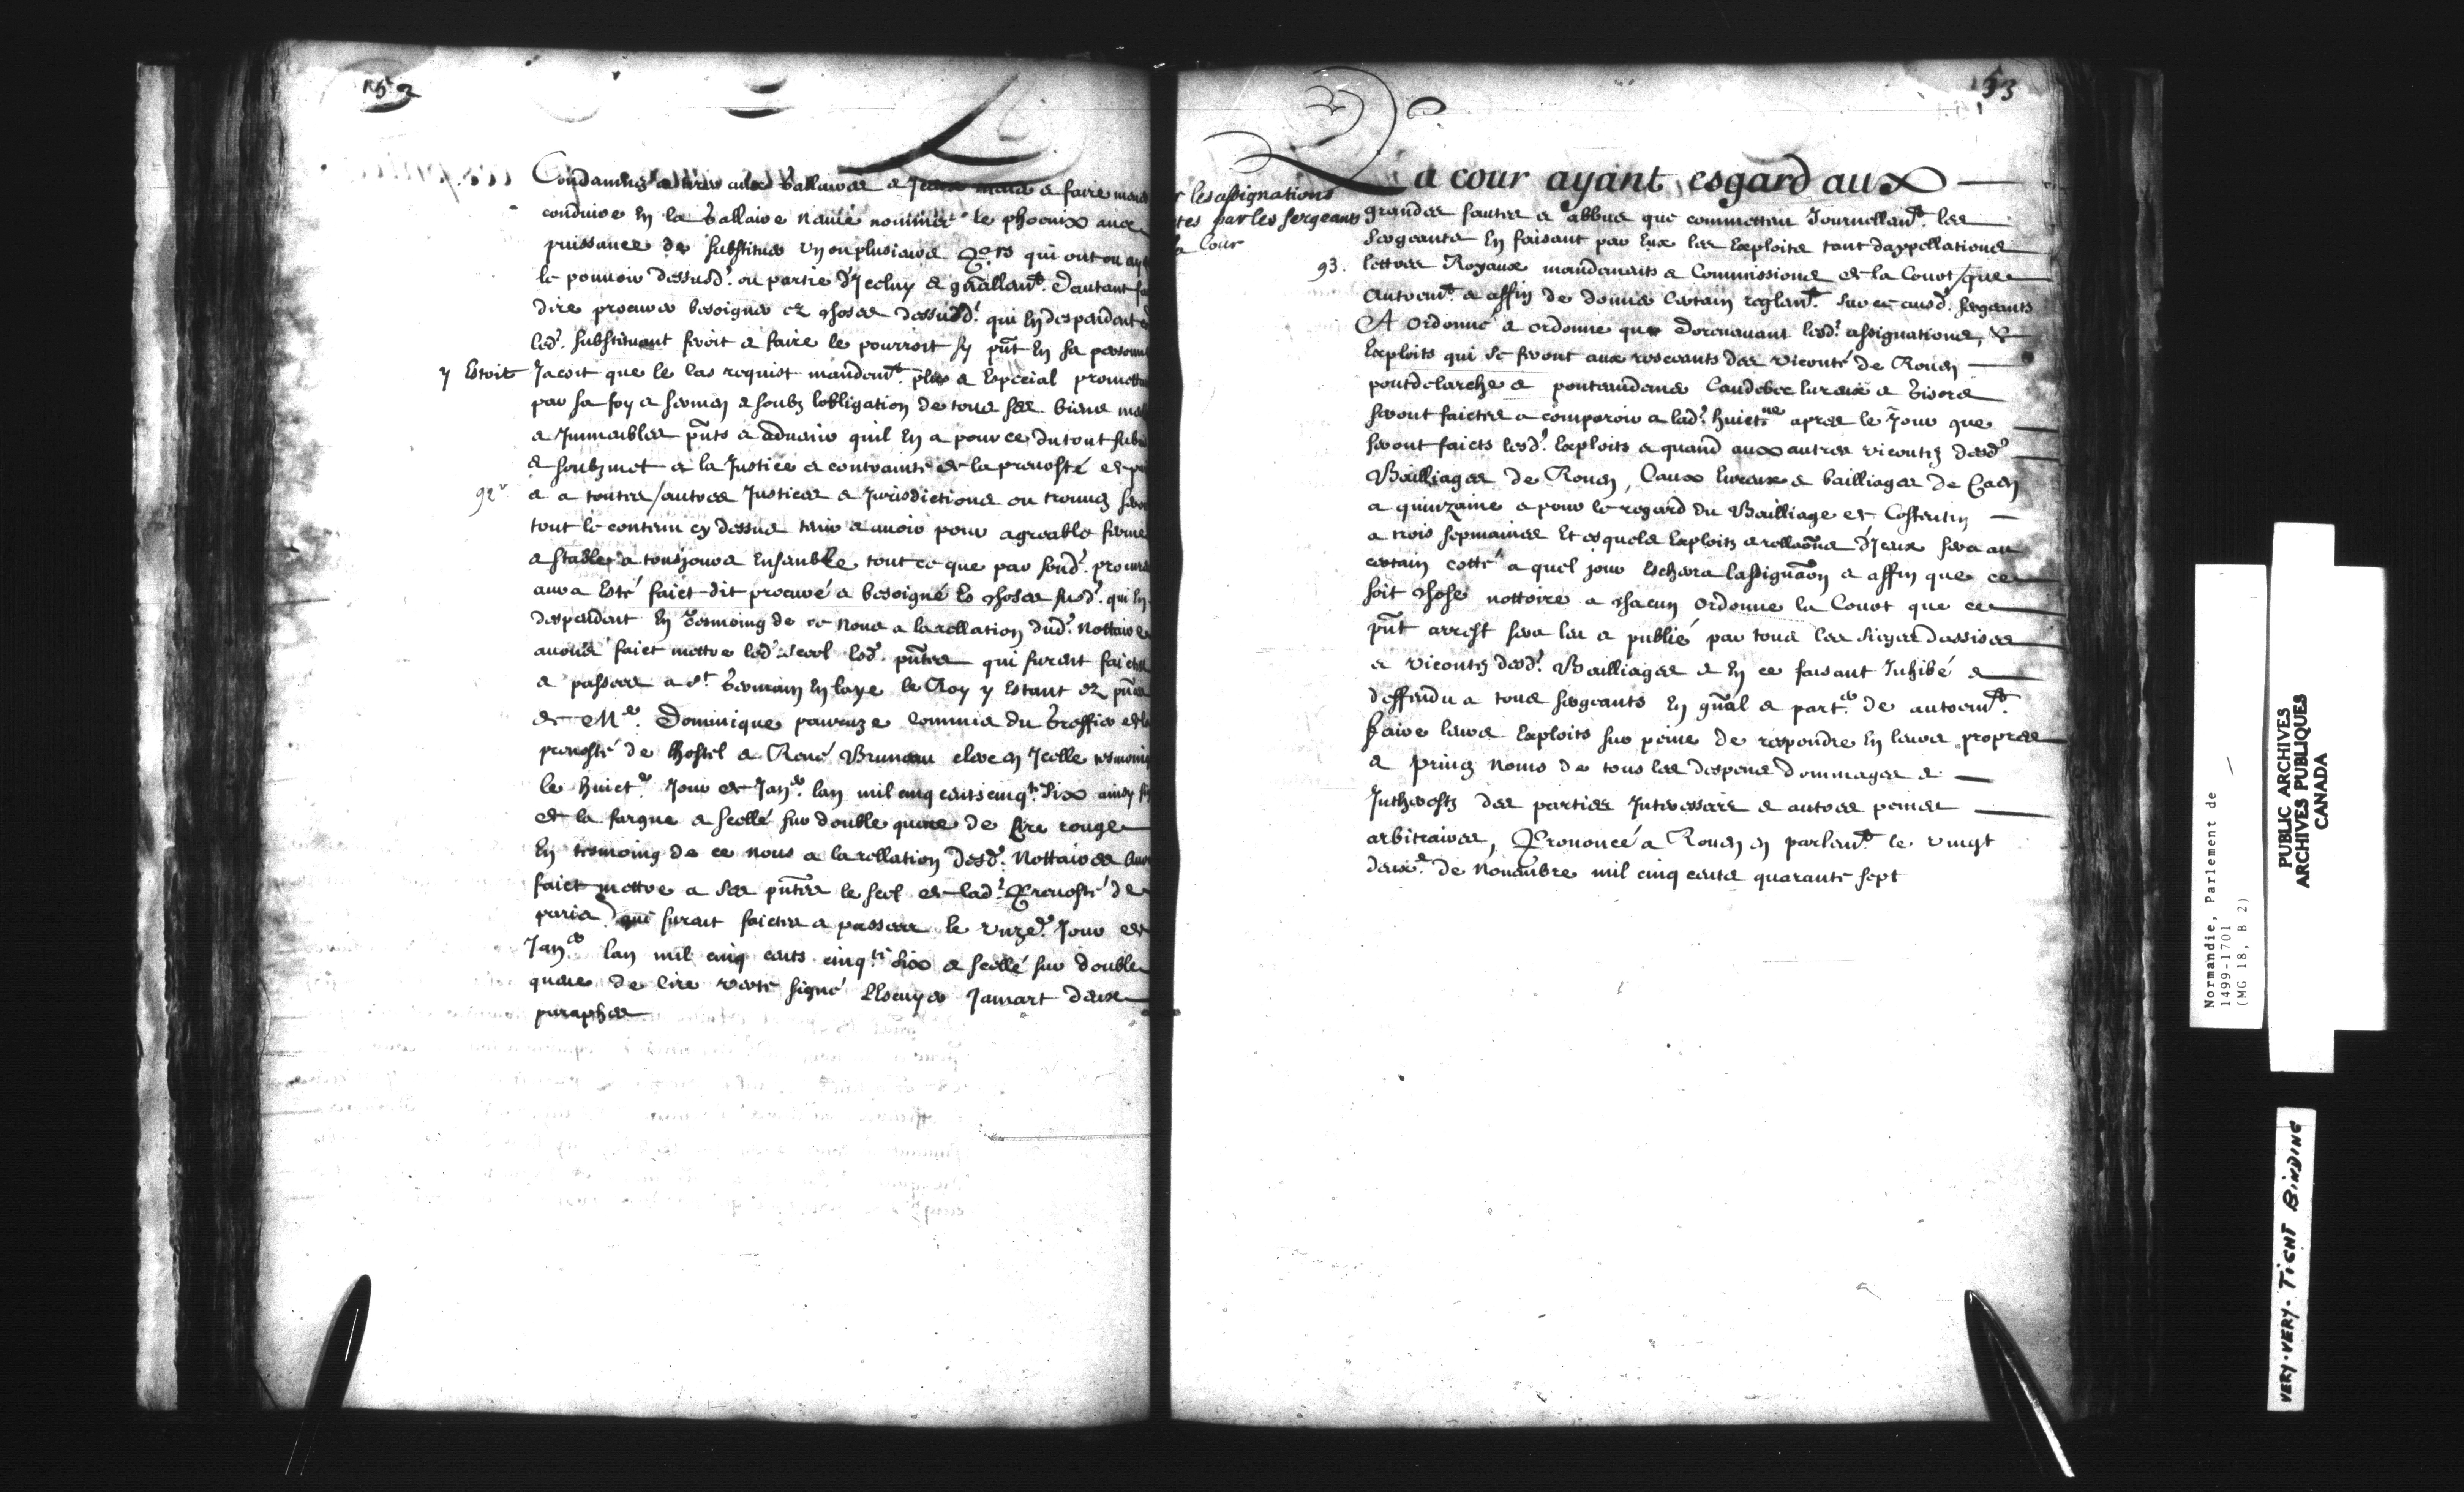 152
Condamnez a faire mener
conduire En la Gallaire nauie nommée le phoenix auec
puissance de substituer vn ou plusieurs qui ont ou
le pouuoir dessusd. ou partie d'Jceluy & gñallemt. dautant
dire procurer besoigner ez choses dessusd. qui En despendent
led. substituant feroit & faire le pourroit sy pñt En sa personne
y Estoit Jacoit que le cas requist mandemt. plus Especial promettant
par sa foy & sermen & soubz lobligation de tous ses biens
& Jmmeubles pñts & aduenir quil En a pour ce du tout
& soubzmet a la Justice & contrainte de la preuosté de
92
& a toutes / autres Justices & Jurisdictions ou trouuez
tout le contenu cy dessus tenir & auoir pour agreable ferme
& stable a tousjours Ensemble tout ce que par sond. procureur
aura Esté faict dit procuré & besoigné Es choses susd. qui En
despendent En tesmoing de ce nous a la rellation dud. Nottaire
auons faict mettre led. scel Esd. pñtes qui furent faictes
& passees a St. Germain En laye le Roy y Estant ez pñces
de Me. Dominique commis du Greffier de la
preuosté de lhostel & René Bruneau clerc en Jcelle tesmoing
le huicte. Jour de Janer. lan mil cinq cents cinqte. Six ainsy
de la fargue & scellé sur double queue de Cire rouge
En tesmoing de ce nous a la rellation desd. Nottaires Auons
faict mettre a ses pñtes le scel de lad. Preuosté de
paris qui furent faictes & passees le vnze. Jour de
Janer lan mil cinq cents cinqte. Six & scellé sur double
queue de cire verte signé Jamart deux
paraphes
153
les assignations
par les sergeants
Cour
La cour ayant esgard aux
grandes fautes & abbus que commettent Journellemt. les
sergeants En faisant par Eux les Exploits tant dappellations
93. lettres Royaux mandements & Commissions de la Court / que
Autremt. & affin de donner Certain reglemt. sur ce ausd. sergeants
A Ordonné & ordonne que dorenauant lesd. assignations, &
Exploits qui se feront aux resceants des viconté de Rouen
pontdelarche & ponteaudemer Caudebec Eureux & Gisors
seront faictes a comparoir a lad. huictne apres le Jour que
seront faicts lesd. Exploits & quand aux autres vicontez desd.
Bailliages de Rouen, Caux Eureux & bailliages de Caen
a quinzaine & pour le regard du Bailliage de Costentin
a trois sepmaines Et esquels Exploits & rellaõns d'Jceux sera au
certain cotté a quel jour Eschera lassignaõn & affin que ce
soit chose nottoire a chacun Ordonne la Court que ce
pñt arrest sera leu & publié par tous les sieges dassises
& vicontez desd. Bailliages & En ce faisant Inhibé &
deffendu a tous sergeants En gñal & part.er de autremt.
faire leurs Exploits sur peine de respondre En leurs propres
& priuez noms de tous les despens dommages &
Jntherests des parties Jnteressees & autres peines
arbitraires, Prononcé a Rouen en parlemt. le vingt
deuxe. de Nouembre mil cinq cents quarante sept
Normandie, Parlement de
1499-1701
(MG 18, B 2)
PUBLIC ARCHIVES
ARCHIVES PUBLIQUES
CANADA
VERY-VERY-TIGHT BINDING